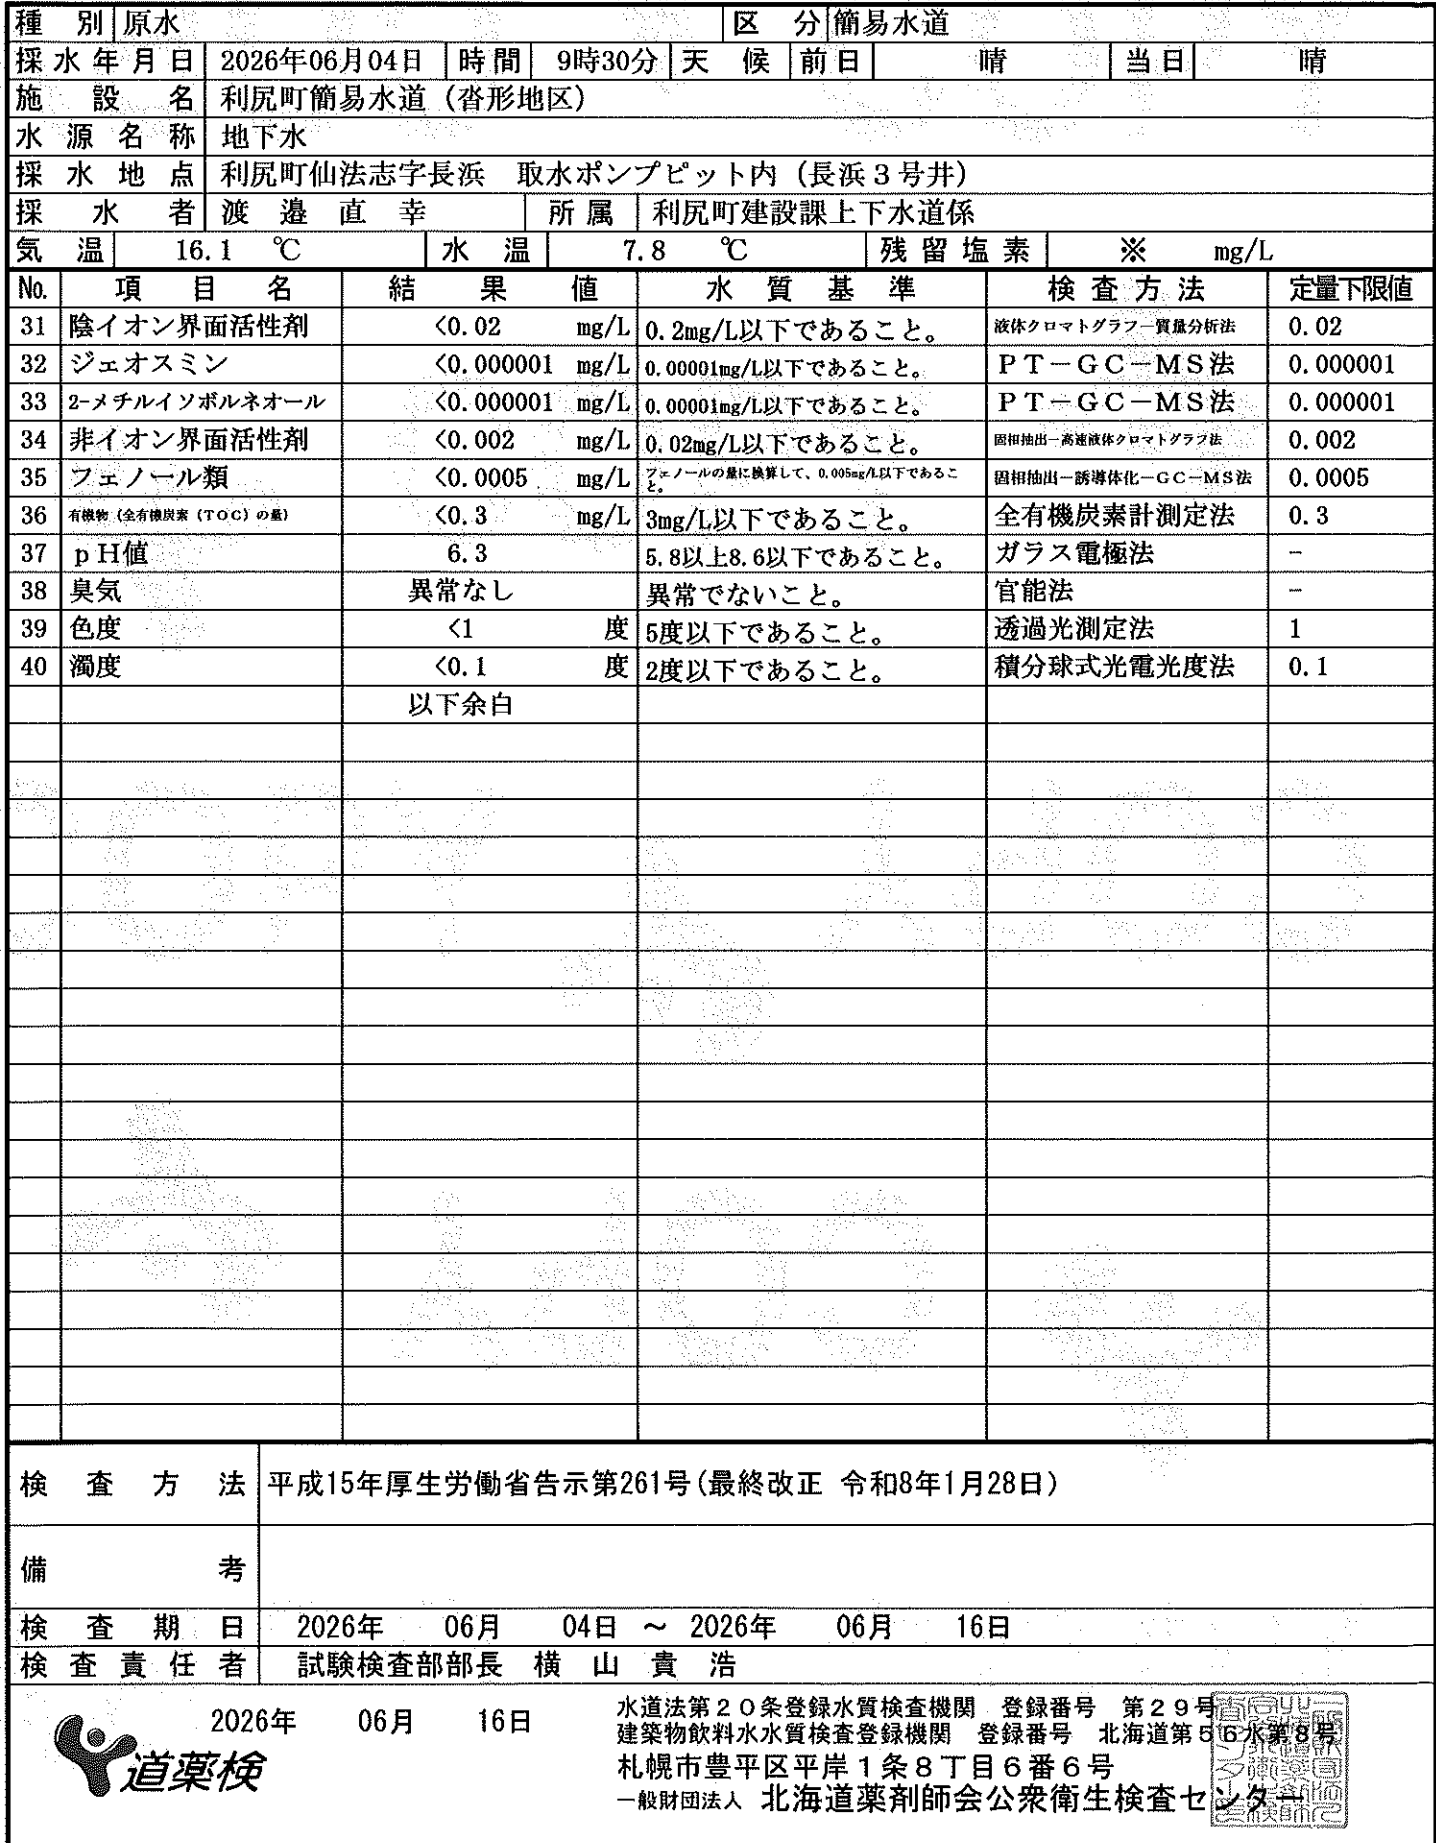 種 別 原水 区 分 簡易水道
採水年月日 2026年06月04日 時間 9時30分 天 候 前日 晴 当日 晴
施 設 名 利尻町簡易水道（沓形地区）
水源名称 地下水
採水地点 利尻町仙法志字長浜 取水ポンプピット内（長浜３号井）
採 水 者 渡 邉 直 幸 所属 利尻町建設課上下水道係
気 温 16.1 ℃ 水 温 7.8 ℃ 残留塩素 ※ mg/L
No. 項 目 名 結 果 値 水 質 基 準 検査方法 定量下限値
31 陰イオン界面活性剤 <0.02 mg/L 0.2mg/L以下であること。 液体クロマトグラフ－質量分析法 0.02
32 ジェオスミン <0.000001 mg/L 0.00001mg/L以下であること。 ＰＴ－ＧＣ－ＭＳ法 0.000001
33 2-メチルイソボルネオール <0.000001 mg/L 0.00001mg/L以下であること。 ＰＴ－ＧＣ－ＭＳ法 0.000001
34 非イオン界面活性剤 <0.002 mg/L 0.02mg/L以下であること。 固相抽出－高速液体クロマトグラフ法 0.002
35 フェノール類 <0.0005 mg/L フェノールの量に換算して、0.005mg/L以下であること。 固相抽出－誘導体化－ＧＣ－ＭＳ法 0.0005
36 有機物（全有機炭素（ＴＯＣ）の量） <0.3 mg/L 3mg/L以下であること。 全有機炭素計測定法 0.3
37 ｐＨ値 6.3 5.8以上8.6以下であること。 ガラス電極法 －
38 臭気 異常なし 異常でないこと。 官能法 －
39 色度 <1 度 5度以下であること。 透過光測定法 1
40 濁度 <0.1 度 2度以下であること。 積分球式光電光度法 0.1
以下余白
検 査 方 法 平成15年厚生労働省告示第261号(最終改正 令和8年1月28日)
備 考
検 査 期 日 2026年 06月 04日 ～ 2026年 06月 16日
検査責任者 試験検査部部長 横 山 貴 浩
2026年 06月 16日
道薬検
水道法第２０条登録水質検査機関 登録番号 第２９号
建築物飲料水水質検査登録機関 登録番号 北海道第５６水第８号
札幌市豊平区平岸１条８丁目６番６号
一般財団法人 北海道薬剤師会公衆衛生検査センター